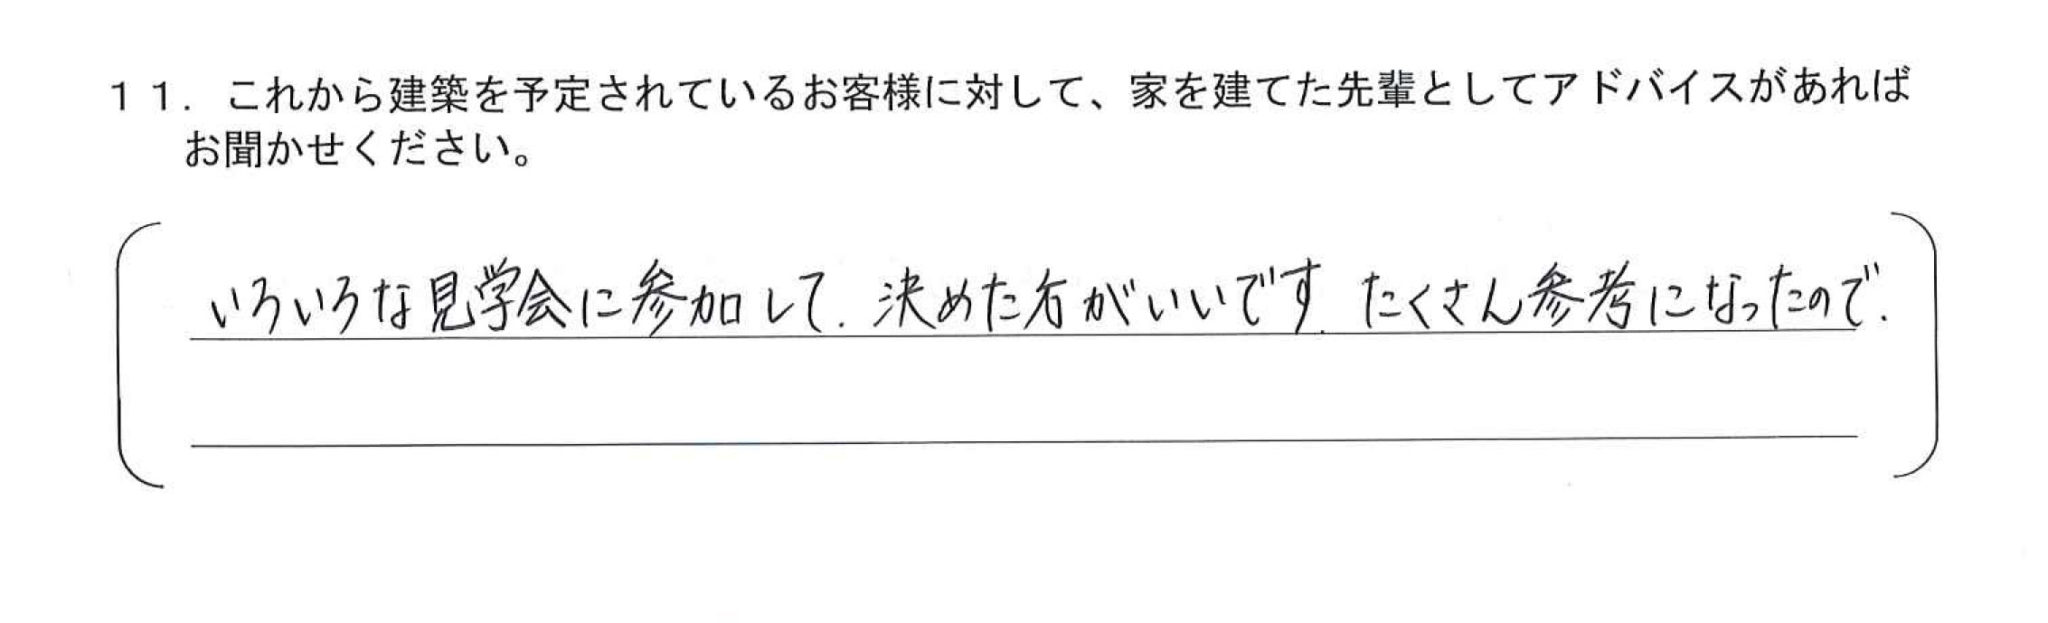 １１．これから建築を予定されているお客様に対して、家を建てた先輩としてアドバイスがあれば
お聞かせください。
いろいろな見学会に参加して．決めた方がいいです．たくさん参考になったので．